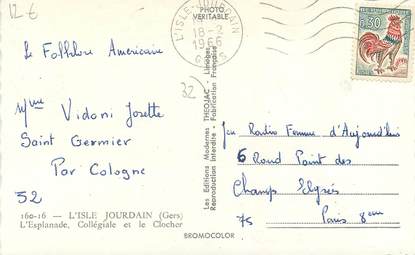 12 €
Le Folklore Americain
Mme Vidoni Josette
Saint Germier
Par Cologne
32
52
160-16 — L'ISLE JOURDAIN (Gers)
L'Esplanade, Collégiale et le Clocher
PHOTO
VERITABLE
L'ISLE-JOURDAIN
18-2
1966
GERS
Les Editions Modernes THEOJAC - Limoges
Reproduction Interdite - Fabrication Française
BROMOCOLOR
0,30
Jeu Radio Femme d'Aujourd'hui
6 Rond Point des
Champs Elysés
75 Paris 8em